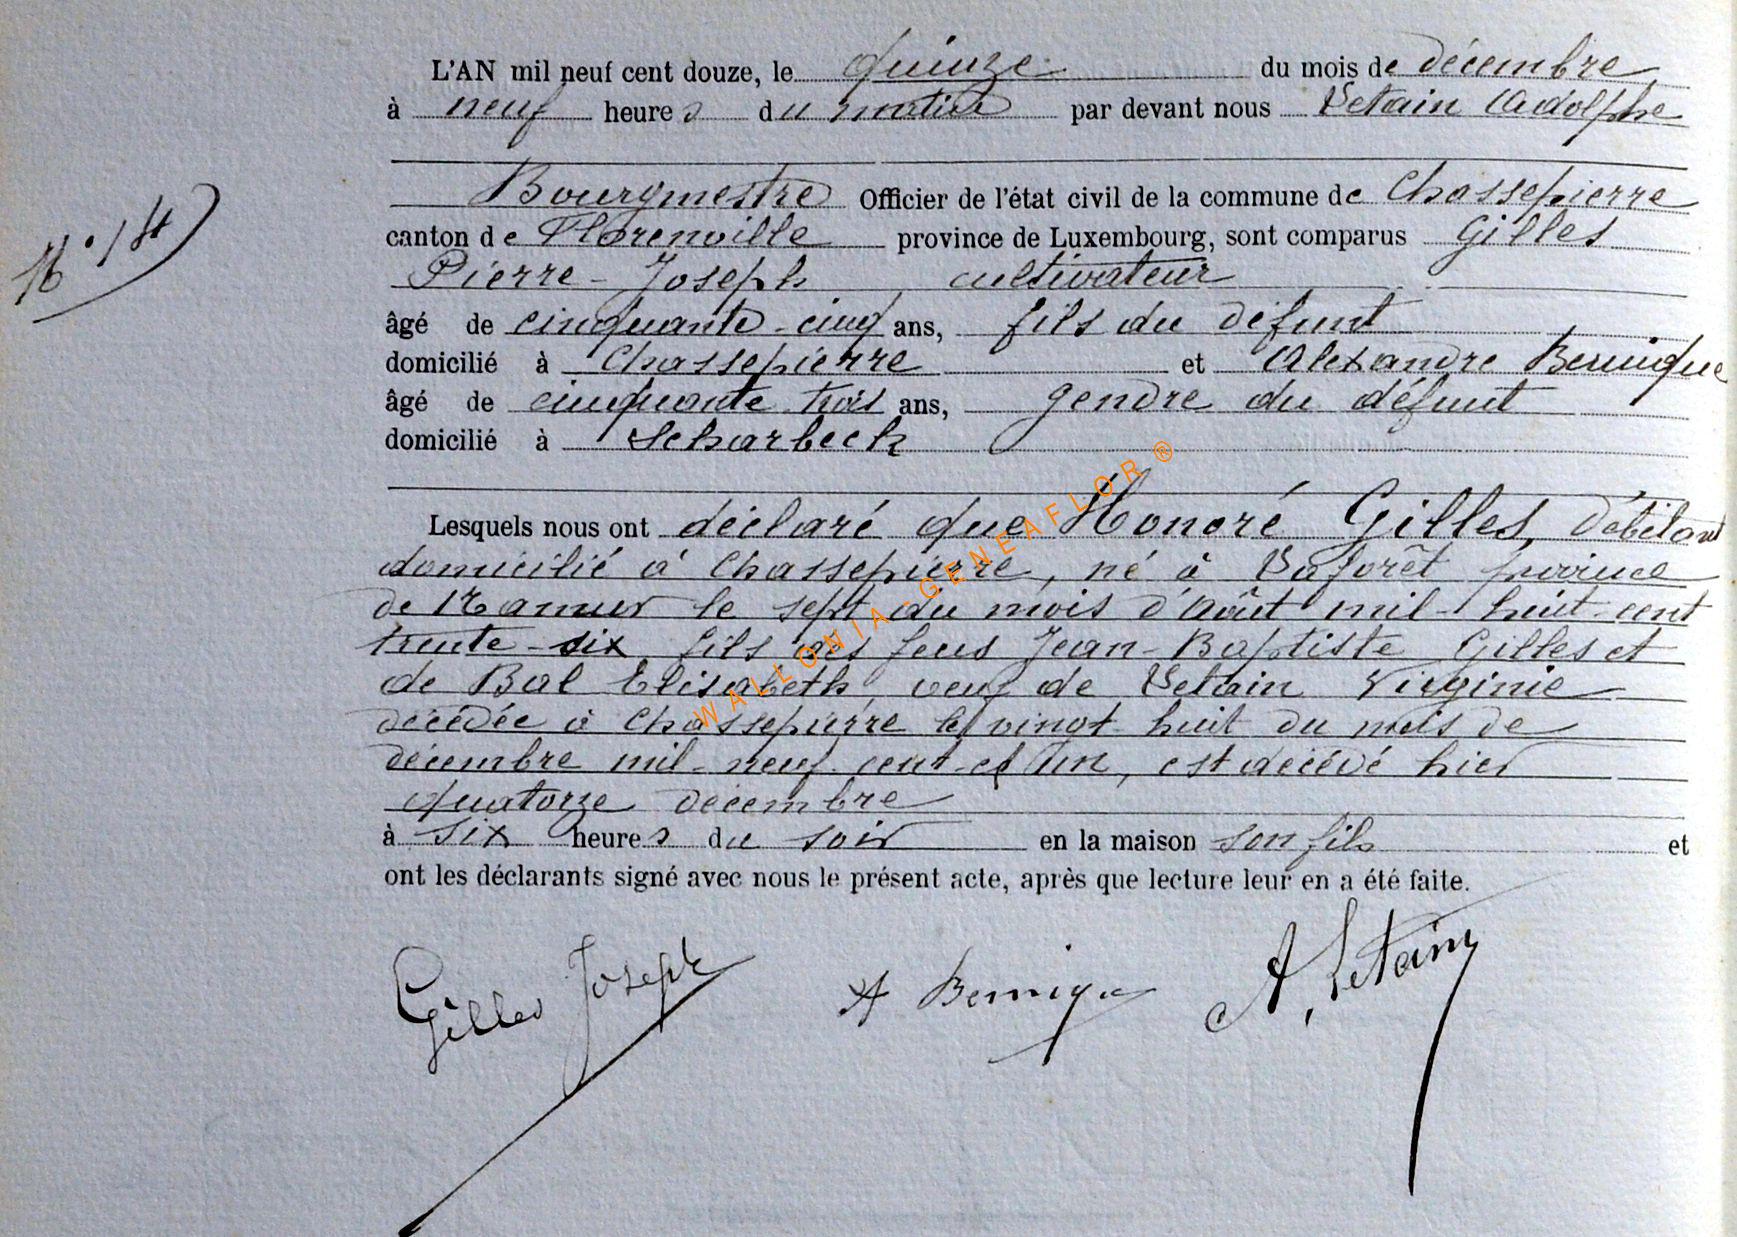 L'AN mil neuf cent douze, le quinze du mois de décembre
à neuf heures du matin par devant nous Letain Adolphe
Bourgmestre Officier de l'état civil de la commune de Chassepierre
N° 14
canton de Florenville province de Luxembourg, sont comparus Gilles
Pierre-Joseph cultivateur
âgé de cinquante-cinq ans, fils du défunt
domicilié à Chassepierre et Alexandre Bernique
âgé de cinquante trois ans, gendre du défunt
domicilié à Scharbeek
Lesquels nous ont déclaré que Honoré Gilles, débitant
domicilié à Chassepierre, né à Laforêt province
de Namur le sept du mois d'août mil-huit-cent
trente-six fils des feus Jean-Baptiste Gilles et
de Bal Elisabeth, veuf de Letain Virginie
décédée à Chassepierre le vingt-huit du mois de
décembre mil-neuf-cent-et un, est décédé hier
quatorze décembre
à six heures du soir en la maison son fils et
ont les déclarants signé avec nous le présent acte, après que lecture leur en a été faite.
Gilles Joseph A Bernique A, Letain
WALLONIA-GENEAFLOR ®